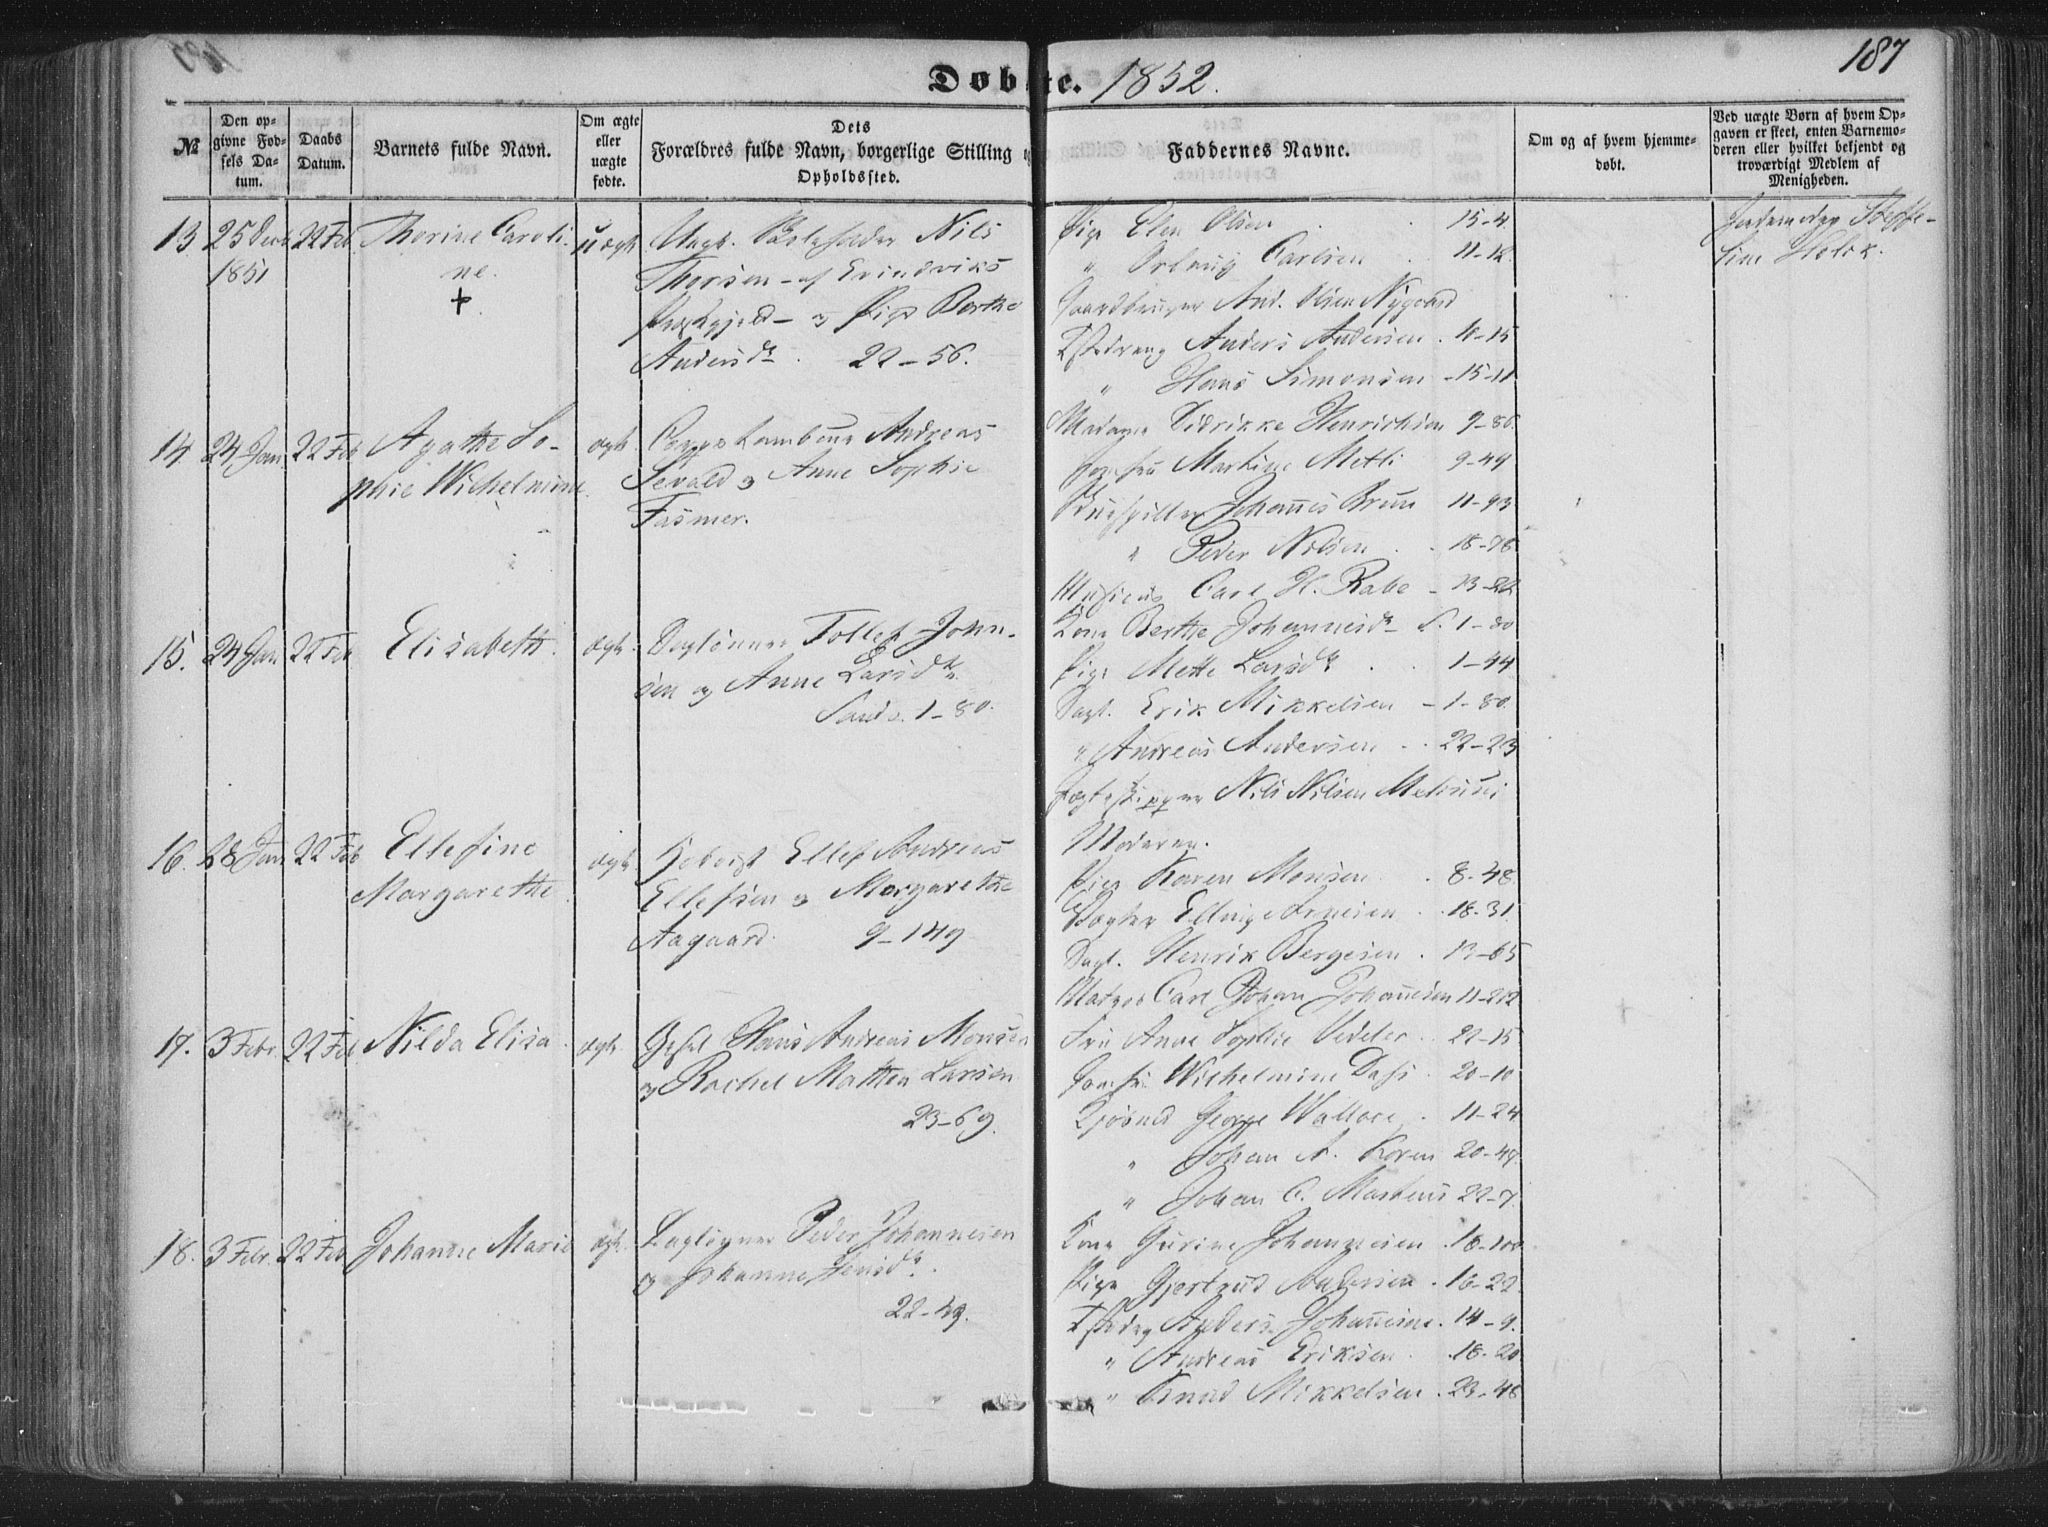 187
Døbte. 1852.
№
Den opgivne Fødsels Datum.
Daabs Datum.
Barnets fulde Navn.
Om ægte eller uægte fødte.
Dets Forældres fulde Navn, borgerlige Stilling og Opholdssted.
Faddernes Navne.
Om og af hvem hjemmedøbt.
Ved uægte Børn af hvem Opgaven er skeet, enten Barnemoderen eller hvilket bekjendt og troværdigt Medlem af Menigheden.
13. 25 Decb 1851 22 Feb Thorine Caroline. + uægte
Ungk. Nils
Thorsen - af Evindviks
Præstgjeld - og Pige Berthe
Andersd. 22-56.
Pige Elen Olsen 15-4
" Solveig Carlsen 11-12
Gaardbruger And. Olsen Nygaard
Tjstedreng Anders Andersen 10-15
" Hans Simonsen 15-11
Jordemoder Steffe-
sine Holck.
14. 24 Jan. 22 Feb Agathe So-
phie Wilhelmine. ægte
Corpstambour Andreas
Sevald og Anne Sophie
Fasmer.
Madame Didrikke Henrichsen 9-86
Jomfru Martine Metli 9-49
Skuespiller Johannes Brun 11-93
" Peder Nilsen 18-78
Musicus Carl H. Rabe 13-22
15. 24 Jan 22 Feb Elisabeth. ægte
Daglønner Tollef John-
sen og Anne Larsd.
Sandv. 1-80.
Kone Berthe Johannesd. S. 1-80
Pige Mette Larsd. 1-44
Dagl. Erik Mikkelsen 1-80
" Andreas Andersen 22-23
Jægteskipper Nils Nilsen
16. 28 Jan 22 Feb Ellefine
Margarethe ægte
Ellef Andreas
Ellefsen og Margarethe
Aagaard. 9-149
Moderen.
Pige Karen Monsen 8-48
Vægter Elling Arnesen 18-31
Dagl. Henrik Bergesen 13-65
Matros Carl Johan Johannesen 11-212
17. 3 Febr. 22 Feb Nilda Elisa ægte
Hans Andreas Monsen
og Rachel Mathea Larsen
23-69.
Fru Anne Sophie Vedeler 22-15
Jomfru Wilhelmine Dahl 20-10
Kjøbmd George Wallace 11-24
" Johan A. Koren 20-47
" Johan C. Martens 22-7
18. 3 Febr. 22 Feb Johanne Marie ægte
Dagløgner Peder Johannesen
og Johanne Jensd.
22-49.
Kone Gurine Johannesen 18-100
Pige Gjertrud Andersen 16-22
Tjstedrg Anders Johannesen 14-9
" Andreas Eriksen 18-20
" Knud Mikkelsen 23-48